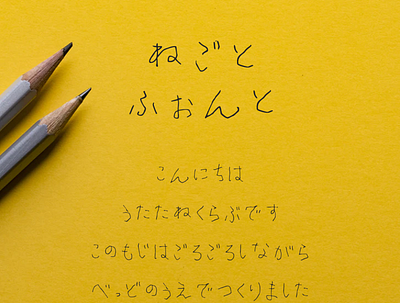 ねごと
ふぉんと
こんにちは
うたたねくらぶです
このもじはごろごろしながら
べっどのうえでつくりました